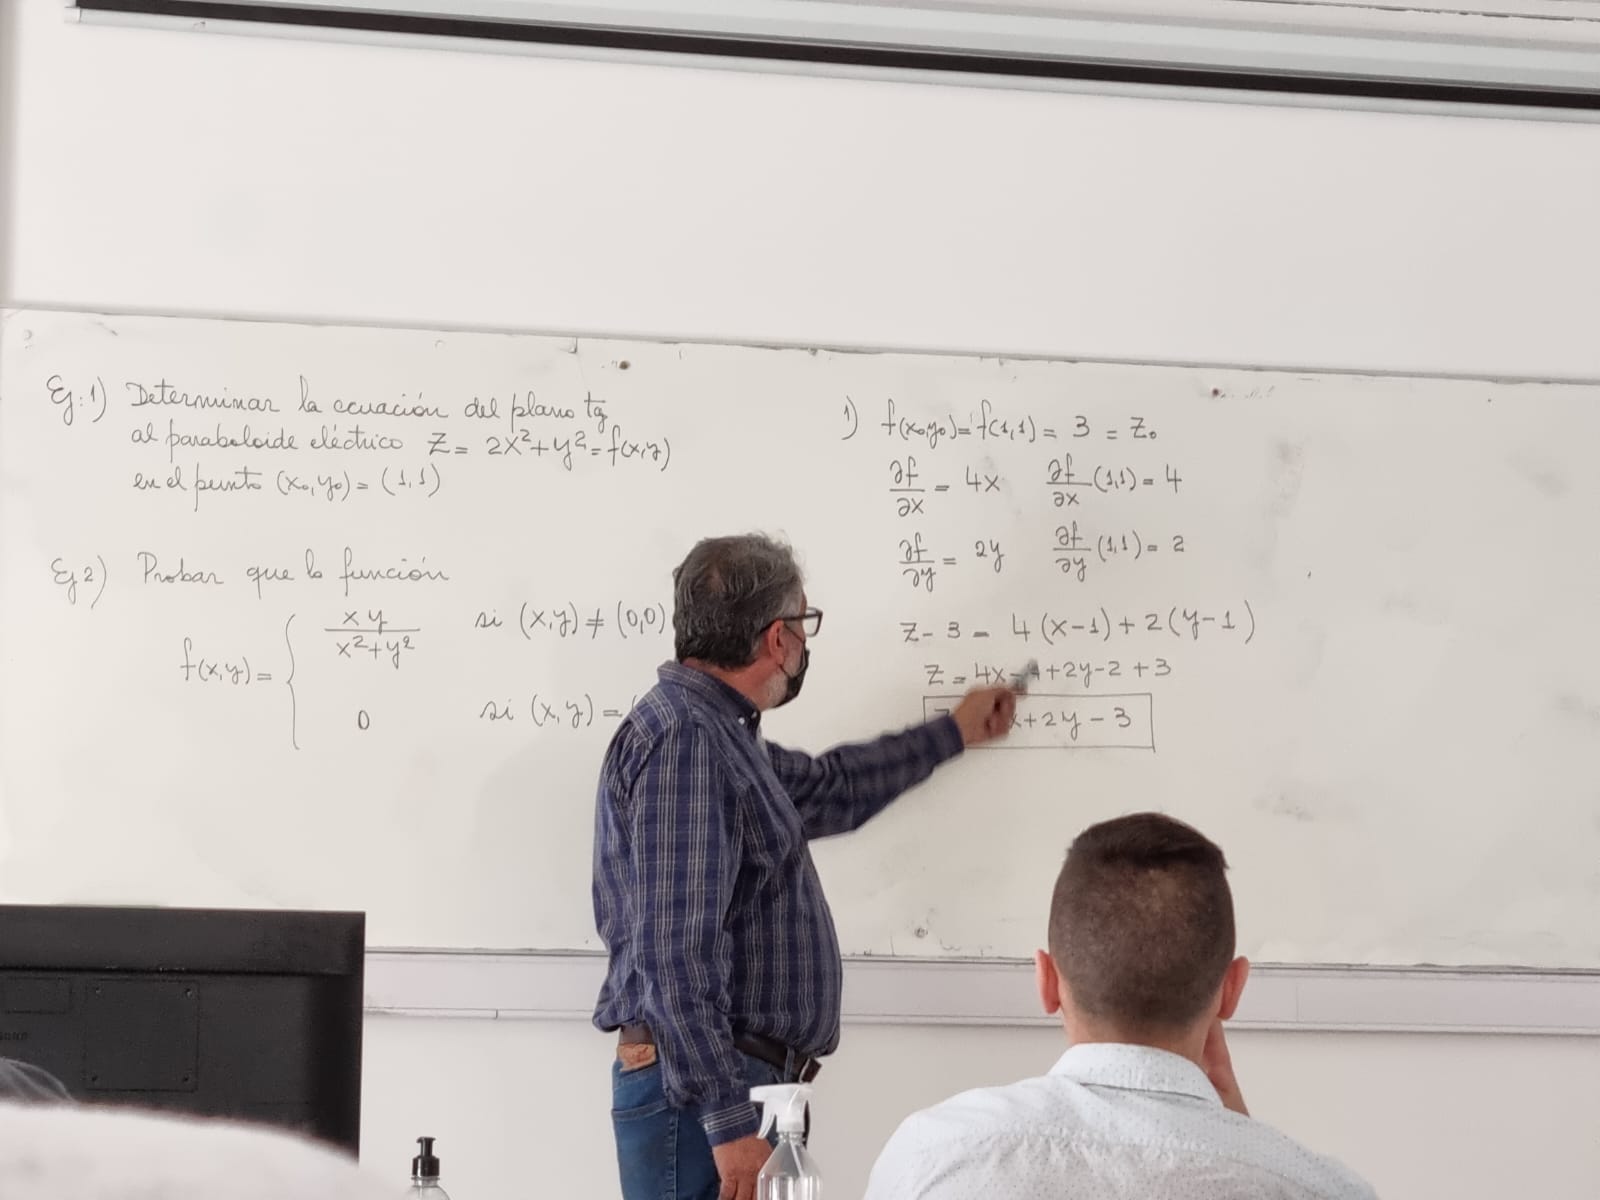 Ej:1) Determinar la ecuación del plano tg
al paraboloide eléctrico Z = 2x²+y² = f(x,y)
en el punto (x₀,y₀) = (1,1)
Ej2) Probar que la función
f(x,y) = { xy / x²+y² si (x,y) ≠ (0,0)
0 si (x,y) =
1) f(x₀,y₀) = f(1,1) = 3 = Z₀
∂f/∂x = 4x ∂f/∂x (1,1) = 4
∂f/∂y = 2y ∂f/∂y (1,1) = 2
Z - 3 = 4(x-1) + 2(y-1)
Z = 4x-4+2y-2+3
x+2y-3